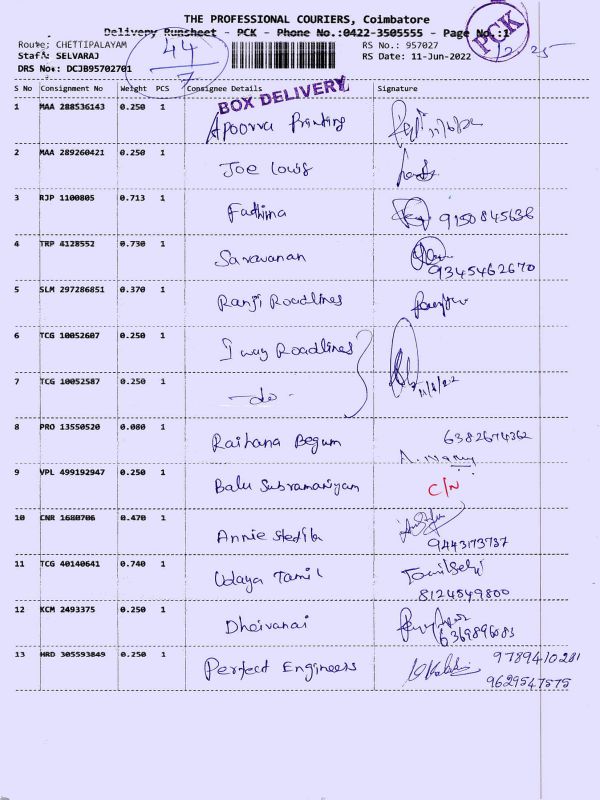 THE PROFESSIONAL COURIERS, Coimbatore
Delivery Runsheet - PCK - Phone No.:0422-3505555 - Page No.:1
PCK
12 25
Route: CHETTIPALAYAM
Staff: SELVARAJ
DRS No: DCJB95702701
44
7
RS No.: 957027
RS Date: 11-Jun-2022
S No Consignment No Weight PCS Consignee Details Signature
BOX DELIVERY
1 MAA 288536143 0.250 1 Apoorva Printing 11/6/22
2 MAA 289260421 0.250 1 Joe Lowis
3 RJP 1100805 0.713 1 Fathima 9150845636
4 TRP 4128552 0.730 1 Saravanan 9345462670
5 SLM 297286851 0.370 1 Ranji Roadlines
6 TCG 10052607 0.250 1 I way Roadlines
7 TCG 10052587 0.250 1 -do- 11/6/22
8 PRO 13550520 0.080 1 Raihana Begum 6382674362
9 VPL 499192947 0.250 1 Balu Subramaniyam C/N
10 CNR 1680706 0.470 1 Annie 9443173737
11 TCG 40140641 0.740 1 Udaya Tamil Tamilselvi
8124549800
12 KCM 2493375 0.250 1 Dheivanai 6369896083
13 HRD 305593849 0.250 1 Perfect Engineers 9789410281
9629547575